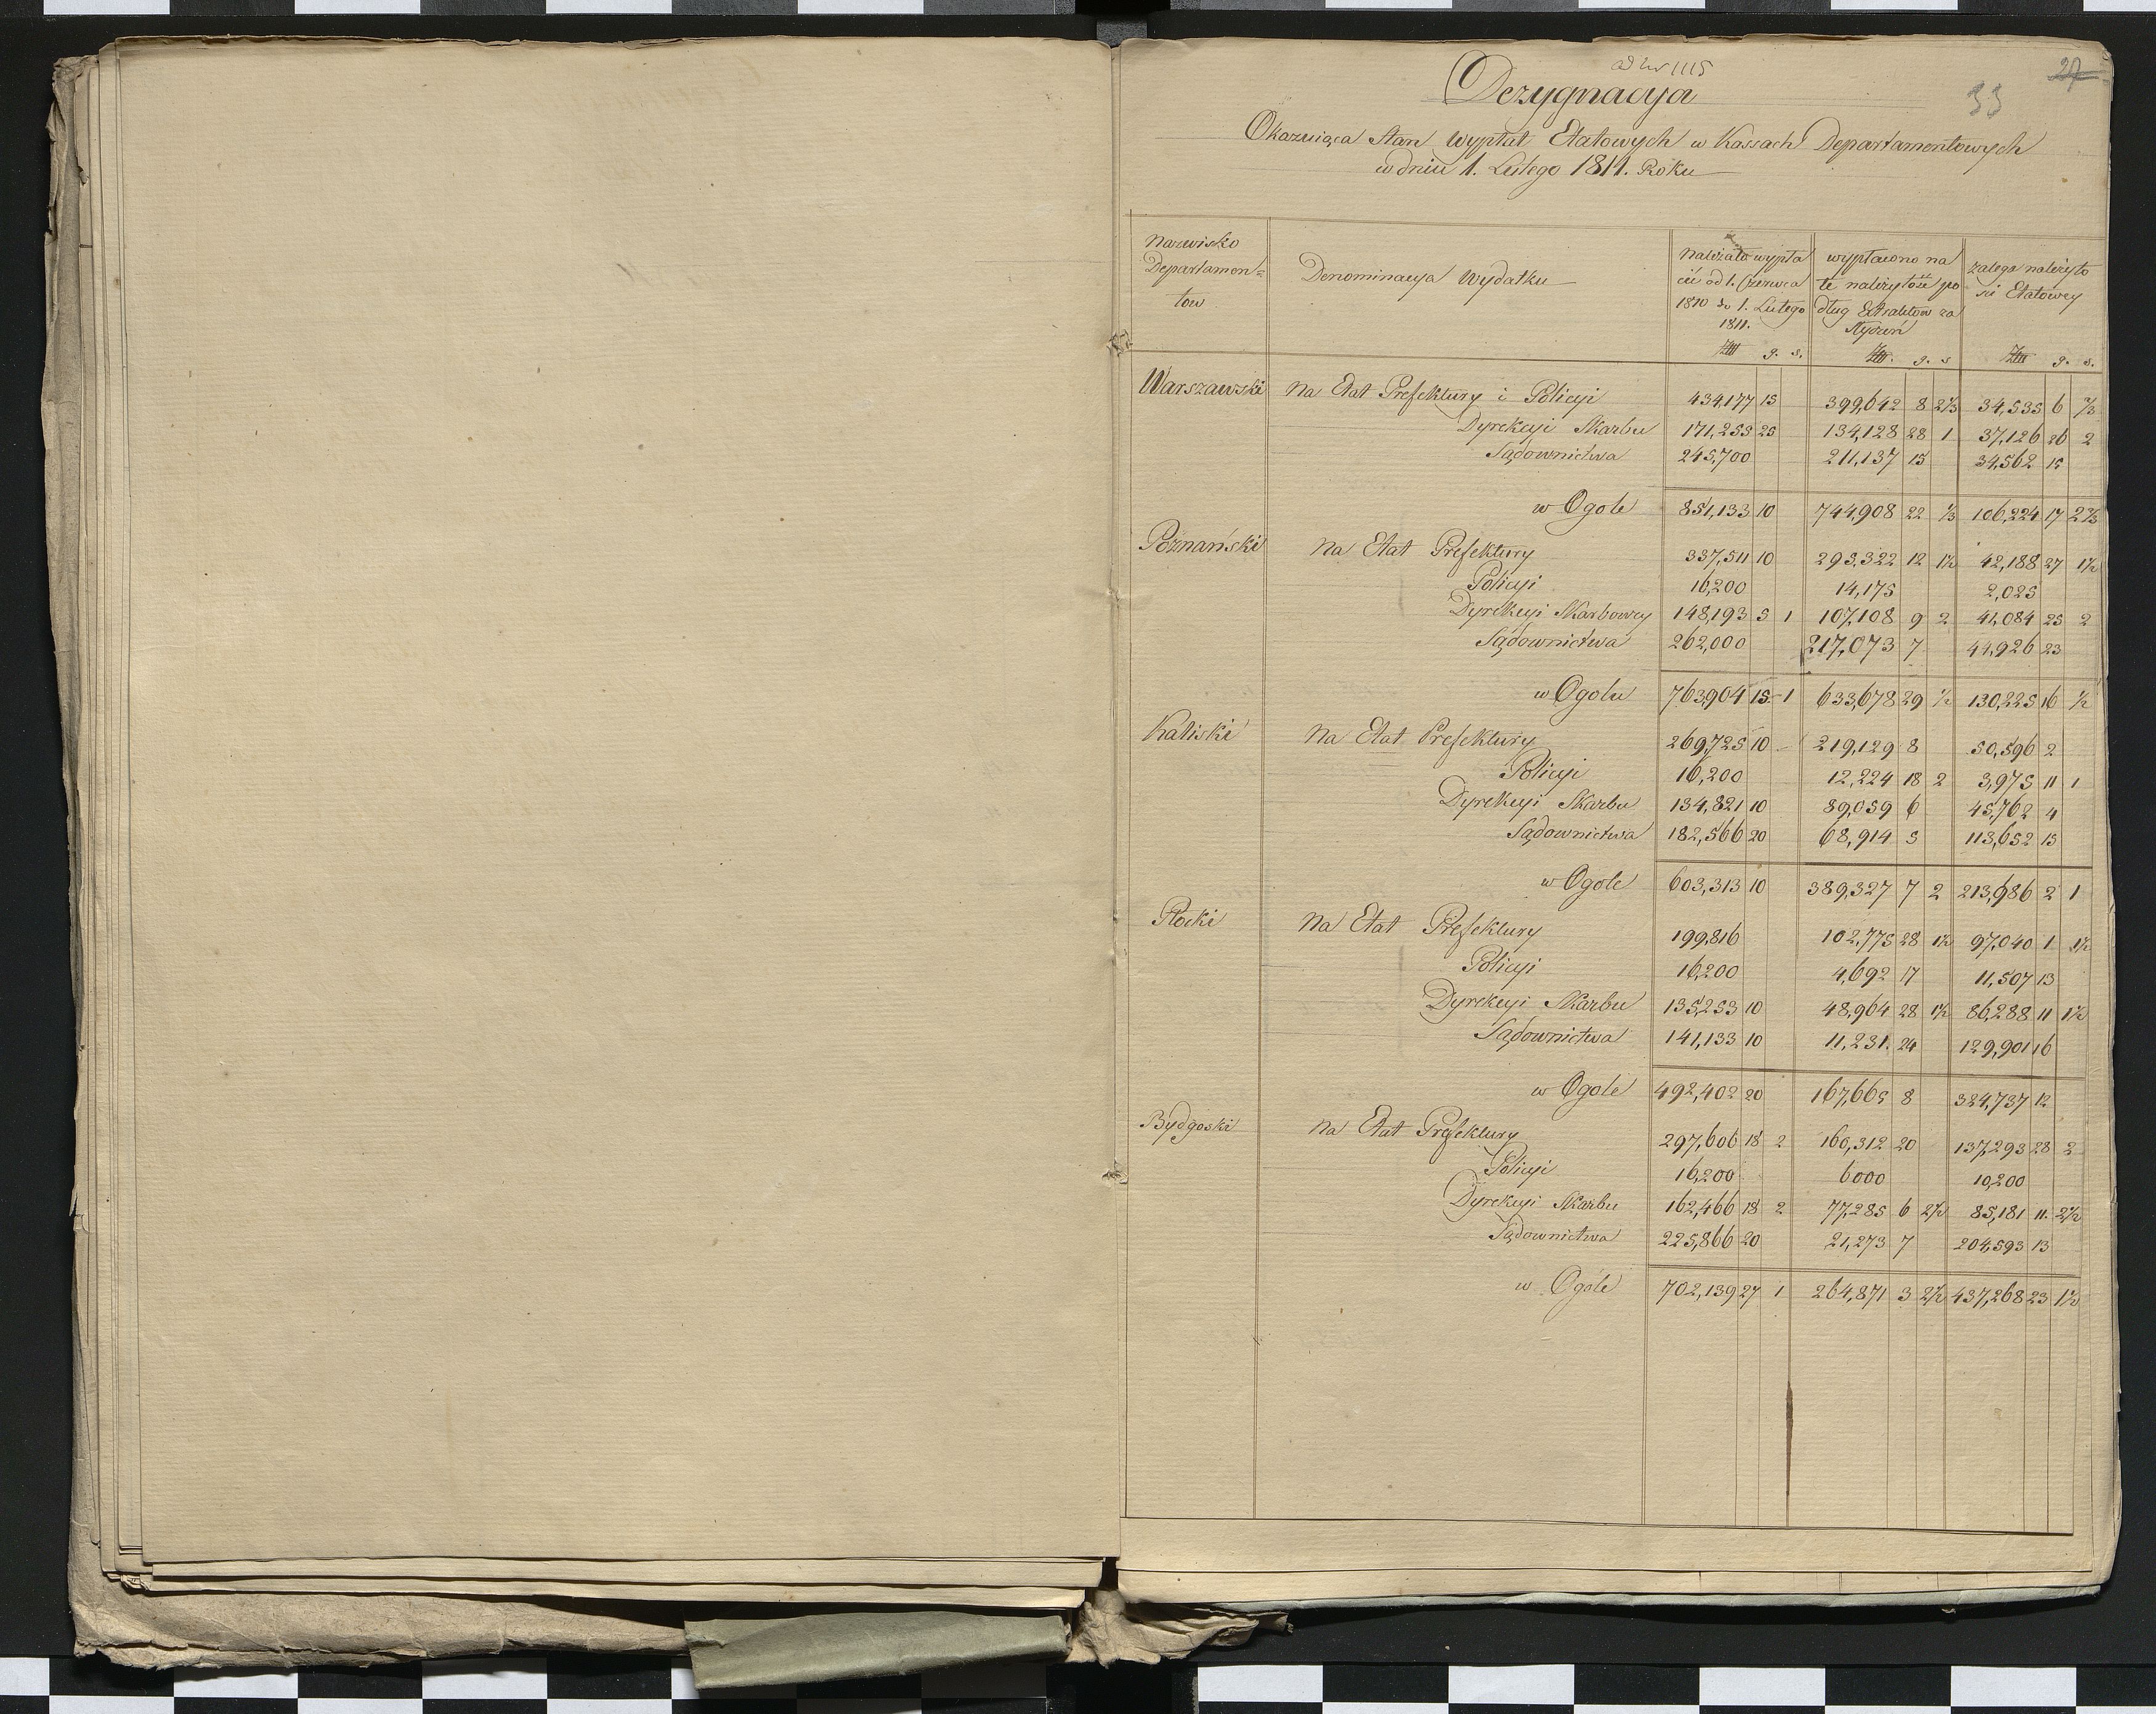 ad No 1115
27
33
Dezygnacyja
Okazuiąca Stan wypłat Etatowych w Kassach Departamentowych
w dniu 1. Lutego 1811. Roku
Nazwisko Departamen= tow
Denominacya Wydatku
Należało wypła cić od 1. Czerwca 1810 do 1. Lutego 1811. g. s.
wypłacono na te należytość po dług Extraktów za Styczeń g. s
zalega należyto ści Etatowey g. s.
Warszawski Na Etat Prefektury i Policyi 434,177 15 399,642 8 2⅓ 34,535 6 ⅔
Dyrekcyi Skarbu 171,255 25 134,128 28 1 37,126 26 2
Sądownictwa 245,700 211,137 15 34,562 15
w Ogole 851,133 10 744,908 22 ⅓ 106,224 17 2⅔
Poznański Na Etat Prefektury 337,511 10 295,322 12 1½ 42,188 27 1½
Policyi 16,200 14,175 2,025
Dyrekcyi Skarbowey 148,193 5 1 107,108 9 2 41,084 25 2
Sądownictwa 262,000 217,073 7 44,926 23
w Ogole 763,904 15 1 633,678 29 ½ 130,225 16 ½
Kaliski Na Etat Prefektury 269,725 10 219,129 8 50,596 2
Policyi 16,200 12,224 18 2 3,975 11 1
Dyrekcyi Skarbu 134,821 10 89,059 6 45,762 4
Sądownictwa 182,566 20 68,914 5 113,652 15
w Ogole 603,313 10 389,327 7 2 213,986 2 1
Płocki Na Etat Prefektury 199,816 102,775 28 1½ 97,040 1 1½
Policyi 16,200 4,692 17 11,507 13
Dyrekcyi Skarbu 135,253 10 48,964 28 1½ 86,288 11 1½
Sądownictwa 141,133 10 11,231. 24 129,901 16
w Ogole 492,402 20 167,665 8 324,737 12
Bydgoski Na Etat Prefektury 297,606 18 2 160,312 20 137,293 28 2
Policyi 16,200 6000 10,200
Dyrekcyi Skarbu 162,466 18 2 77,285 6 2½ 85,181 11. 2½
Sądownictwa 225,866 20 21,273 7 204,593 13
w Ogole 702,139 27 1 264,871 3 2½ 437,268 23 1½